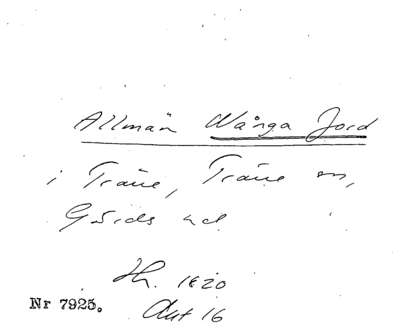 Allmän Wånga Jord
i Träne, Träne sn,
Gärds hd
Th. 1820
Akt 16
Nr 7925.